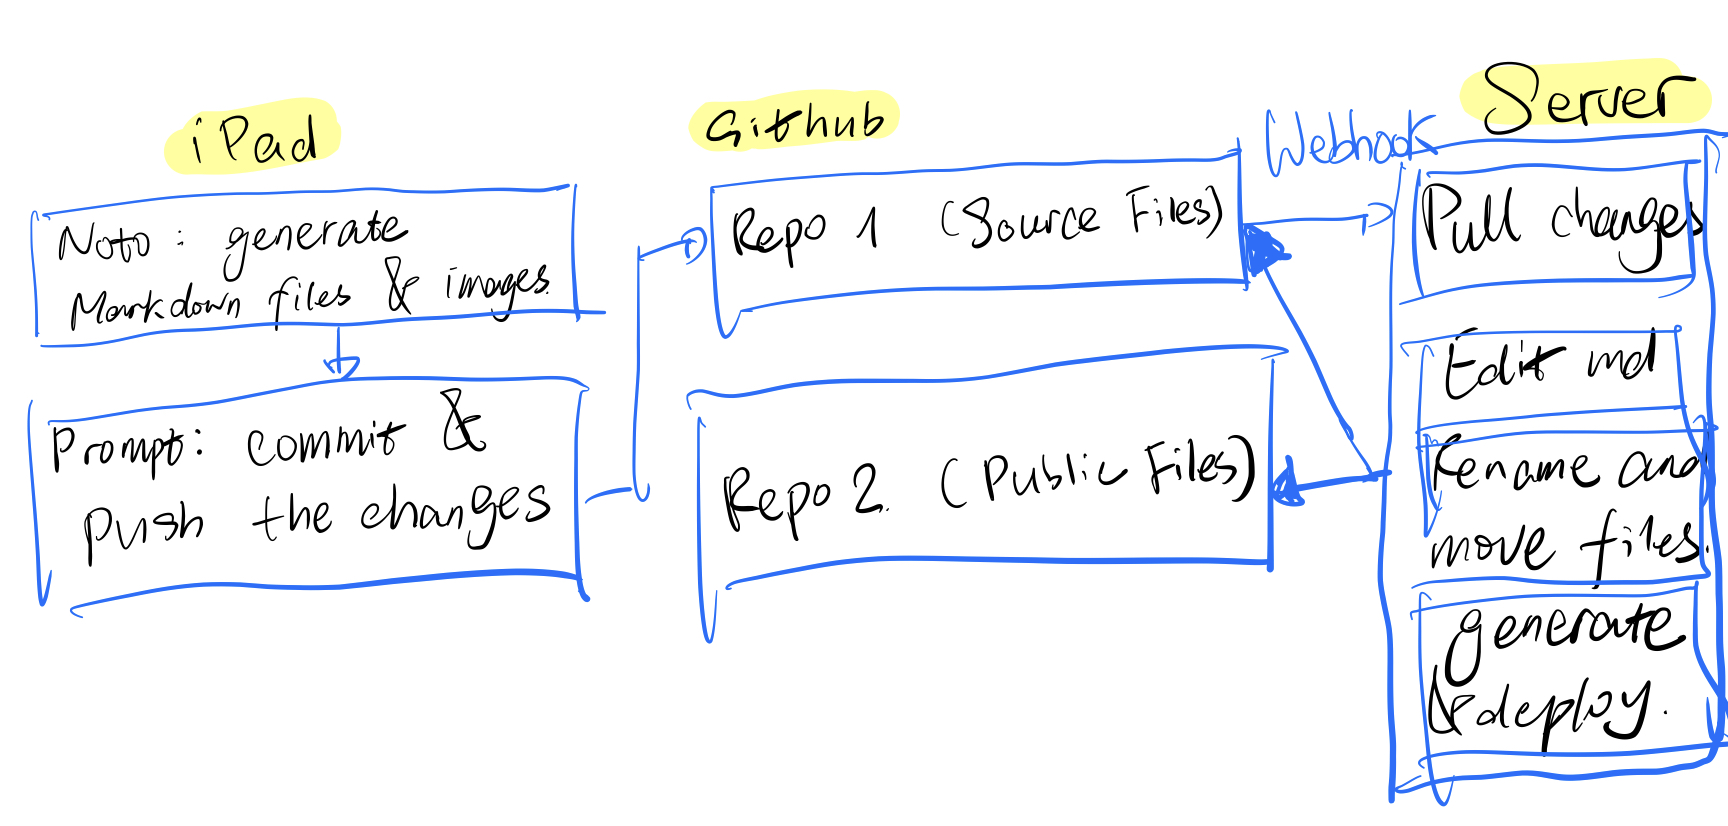 iPad
Noto: generate
Markdown files & images.
Prompt: commit &
Push the changes
Github
Repo 1 (Source Files)
Repo 2. (Public Files)
Webhook
Server
Pull changes
Edit md
Rename and
move files.
generate
& deploy.